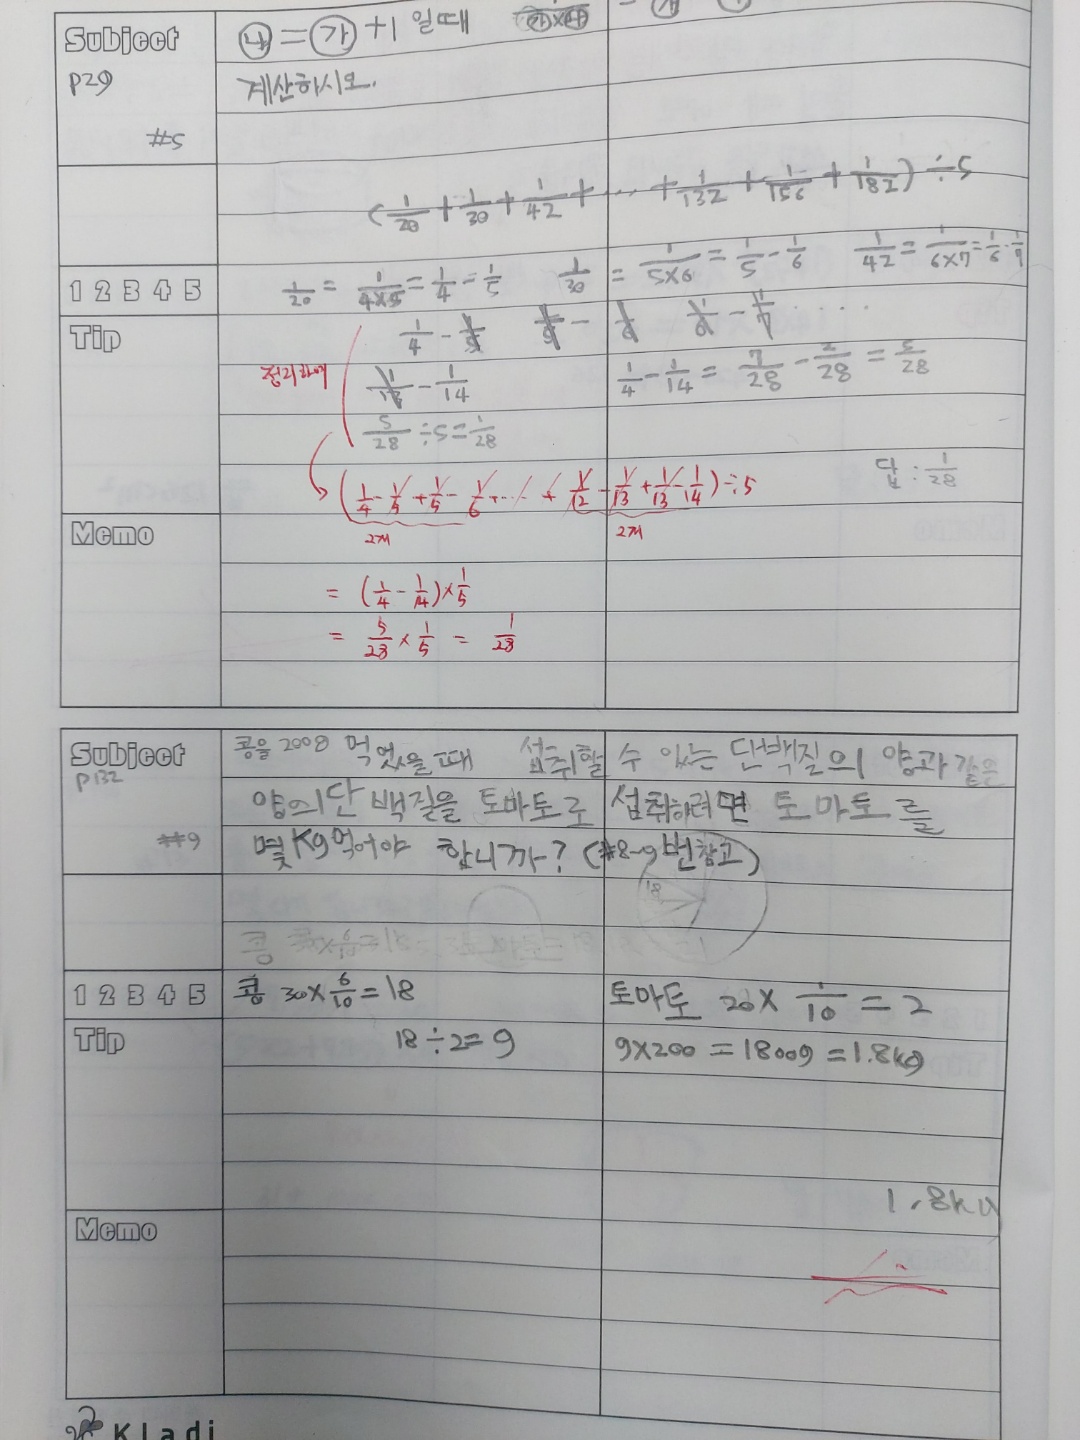 Subject
㉯=㉮+1 일때
P29
계산하시오.
#5
(1/20+1/30+1/42+...+1/132+1/156+1/182)÷5
1 2 3 4 5
1/20=1/4×5=1/4-1/5 1/30=1/5×6=1/5-1/6 1/42=1/6×7=1/6-1/7
Tip
1/4-1/5 1/5-1/6 1/6-1/7 ...
정리하여
1/13-1/14 1/4-1/14=7/28-2/28=5/28
5/28÷5=1/28
답:1/28
(1/4-1/5+1/5-1/6+...+1/12-1/13+1/13-1/14)÷5
Memo
=(1/4-1/14)×1/5
=5/28×1/5=1/28
Subject
콩을 200g 먹었을 때 섭취할 수 있는 단백질의 양과 같은
P132
양의 단백질을 토마토로 섭취하려면 토마토를
#9
몇 Kg 먹어야 합니까? (#8-9번 참고)
1 2 3 4 5
콩 30×6/10=18 토마토 20×1/10=2
Tip
18÷2=9 9×200=1800g=1.8kg
1.8kg
Memo
Kladi